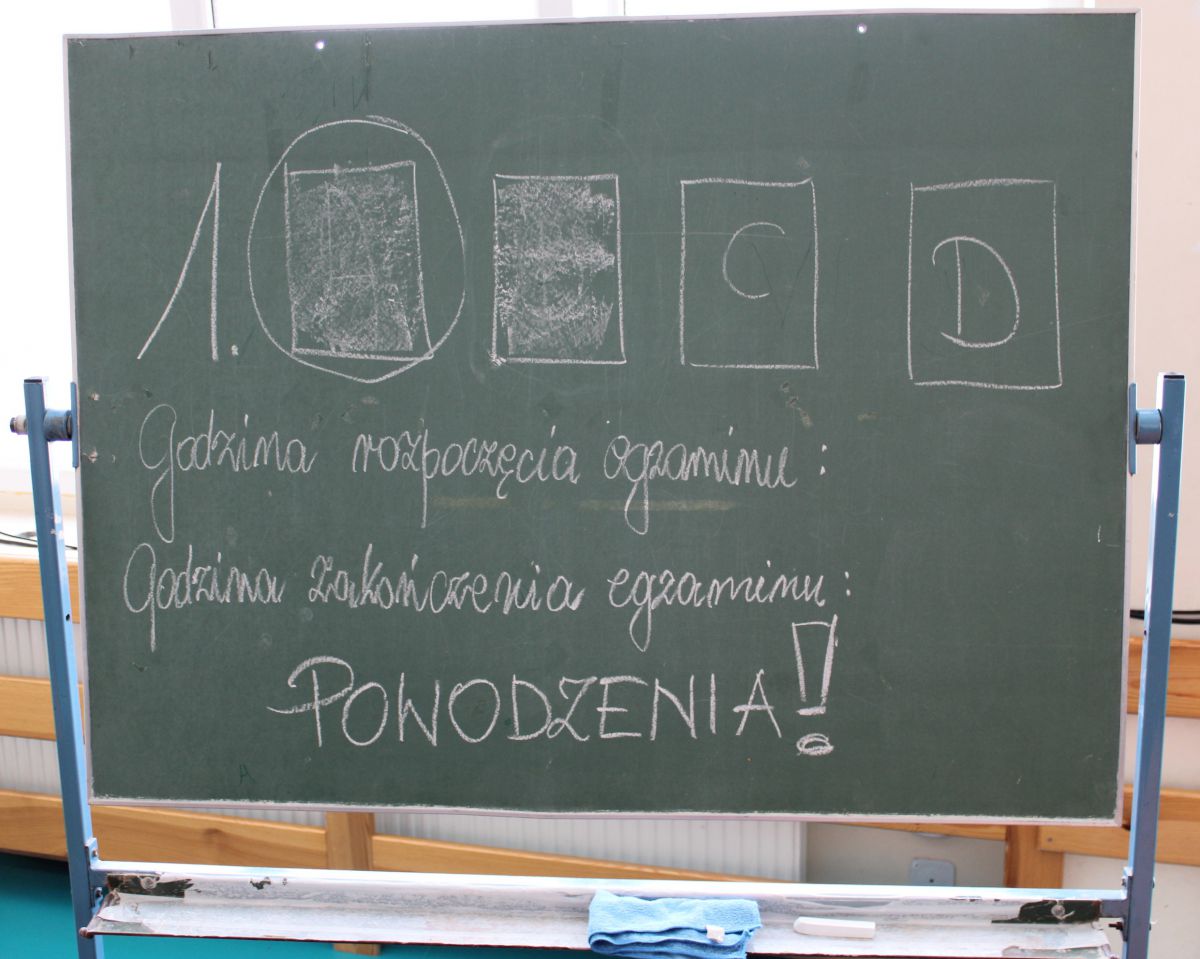 1. C D
Godzina rozpoczęcia egzaminu :
Godzina zakończenia egzaminu :
POWODZENIA!